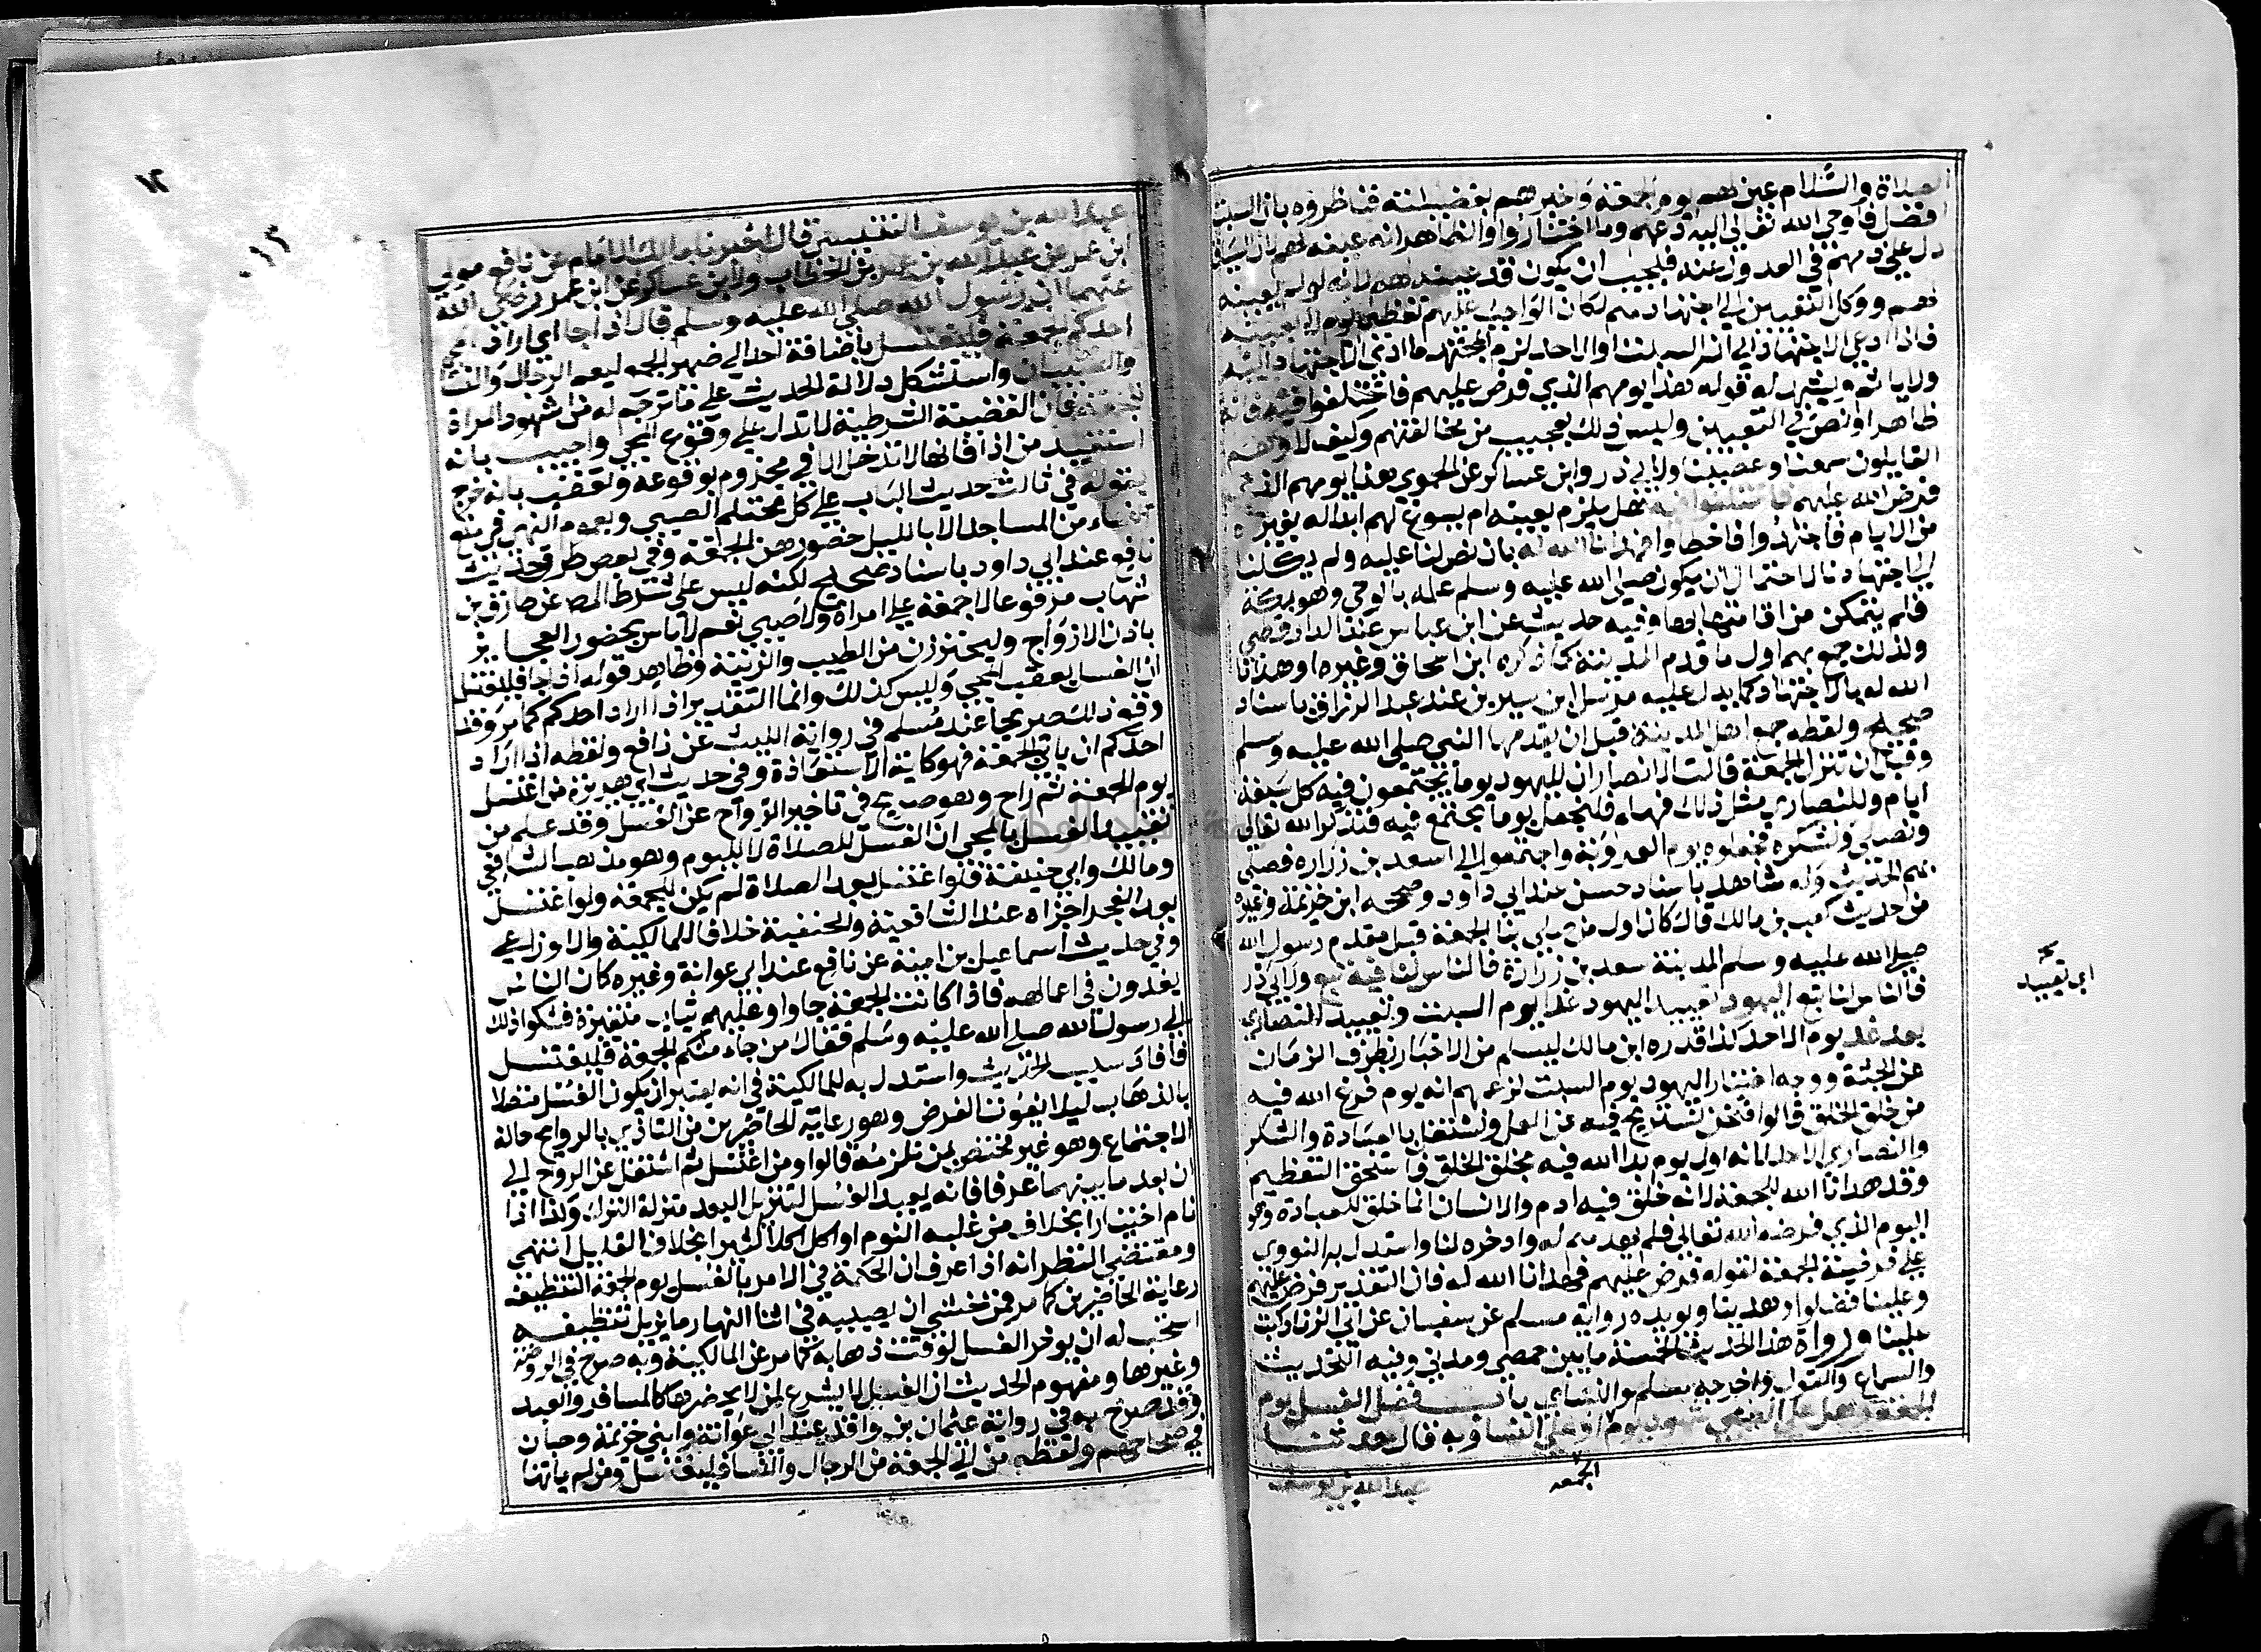 الصلاة والسلام عين لهم يوم الجمعة واخبرهم بفضيلته فناظروه بان السبت
افضل فاوحي الله تعالي اليه دعهم وما اختاروا والظاهر انه عينه لهم لان السياق
دل علي ذمهم في العدول عنه فيجب ان يكون قد عينه لهم لانه لو لم يعينه
لهم ووكل التعيين الي اجتهادهم لكان الواجب عليهم تعظيم يوم لا بعينه
فاذا ادي الاجتهاد الي انه السبت او الاحد لزم المجتهد ما ادي الاجتهاد اليه
ولا ياثم ويشهد له قوله هذا يومهم الذي فرض عليهم فاختلفوا فيه فانه
ظاهر او نص في التعيين وليس ذلك بعجيب من مخالفتهم وكيف لا وهم
القايلون سمعنا وعصينا ولابي ذر وابن عساكر عن الحموي هذا يومهم الذي
فرض الله عليهم فاختلفوا فيه هل يلزم بعينه ام يسوغ لهم ابداله بغيره
من الايام فاجتهدوا فاخطاوا فهدانا الله له بان نص لنا عليه ولم يكلنا
الي اجتهادنا لاحتمال ان يكون صلي الله عليه وسلم علمه بالوحي وهو بمكة
فلم يتمكن من اقامتها بها وفيه حديث عن ابن عباس عند الدارقطني
ولذلك جمع بهم اول ما قدم المدينة كما ذكره ابن اسحاق وغيره او هدانا
الله له بالاجتهاد كما يدل عليه مرسل ابن سيرين عند عبد الرزاق باسناد
صحيح ولفظه جمع اهل المدينة قبل ان يقدمها النبي صلي الله عليه وسلم
وقبل ان تنزل الجمعة قالت الانصار ان لليهود يوما يجتمعون فيه كل سبعة
ايام وللنصاري مثل ذلك فهلم فلنجعل يوما نجتمع فيه فنذكر الله تعالي
ونصلي ونشكره فجعلوه يوم العروبة واجتمعوا الي اسعد بن زرارة فصلي
بهم الحديث وله شاهد باسناد حسن عند ابي داود وصححه ابن خزيمة وغيره
من حديث كعب بن مالك قال كان اول من صلي بنا الجمعة قبل مقدم رسول الله
صلي الله عليه وسلم المدينة سعد بن زرارة فالناس لنا فيه تبع ولابي ذر
فالناس لنا تبع اليهود تعييد اليهود غدا يوم السبت وتعييد النصاري
بعد غد يوم الاحد كذا قدره ابن مالك ليسلم من الاخبار بظرف الزمان
عن الجثة ووجه اختيار اليهود يوم السبت لزعمهم انه يوم فرغ الله فيه
من خلق الخلق قالوا فنحن نستريح فيه عن العمل ونشتغل بالعبادة والشكر
والنصاري الاحد لانه اول يوم بدا الله فيه بخلق الخلق فاستحق التعظيم
وقد هدانا الله للجمعة لانه خلق فيه ادم والانسان انما خلق للعبادة وهو
اليوم الذي فرضه الله تعالي فلم يهدهم له وادخره لنا واستدل به النووي
علي فرضية الجمعة لقوله فرض عليهم فهدانا الله له فان التقدير فرض عليهم
وعلينا فضلوا وهدينا ويويده رواية مسلم عن سفيان عن ابي الزناد كتب
علينا ورواة هذا الحديث الخمسة ما بين حمصي ومدني وفيه التحديث
والسماع والقول واخرجه مسلم والنساي باب فضل الغسل يوم
الجمعة وهل علي الصبي شهود يوم او علي النسا وبه قال حدثنا
الجمعه
عبد الله بن يوسف
اي تعييد
عبد الله بن يوسف التنيسي قال اخبرنا مالك الامام عن نافع مولي
ابن عمر عن عبد الله بن عمر بن الخطاب ولابن عساكر عن ابن عمر رضي الله
عنهما ان رسول الله صلي الله عليه وسلم قال اذا جا اي اراد المجي
احدكم الجمعة فليغتسل باضافة احد الي ضمير الجمع ليعم الرجال والنسا
والصبيان واستشكل دلالة الحديث علي ما ترجم له من شهود امراة
للجمعة فان القضية الشرطية لا تدل علي وقوع المجي واجيب بانه
استفيد من اذا فانها لا تدخل الا في مجزوم بوقوعه وتعقب بانه خرج
بقوله في ثالث حديث الباب علي كل محتلم الصبي وبعموم النهي في منع
النساء من المساجد الا بالليل حضورهن الجمعة وفي بعض طرق حديث
نافع عند ابي داود باسناد صحيح لكنه ليس علي شرط المص عن طارق بن
شهاب مرفوعا لا جمعة علي امراة ولا صبي نعم لا باس بحضور العجايز
باذن الازواج وليحترزن من الطيب والزينة وظاهر قوله اذا جا فليغتسل
ان الغسل يعقب المجي وليس كذلك وانما التقدير اذا اراد احدكم كما مر وقد
وقع ذلك صريحا عند مسلم في رواية الليث عن نافع ولفظه اذا اراد
احدكم ان ياتي الجمعة فهو كاية الاستعاذة وفي حديث ابي هريرة من اغتسل
يوم الجمعة ثم راح وهو صريح في تاخير الرواح عن الغسل وقد علم من
تقييد الغسل بالمجي ان الغسل للصلاة لا لليوم وهو مذهب الشافعي
ومالك وابي حنيفة فلو اغتسل بعد الصلاة لم يكن للجمعة ولو اغتسل
بعد الفجر اجزاه عند الشافعية والحنفية خلافا للمالكية والاوزاعي
وفي حديث اسماعيل بن امية عن نافع عند ابي عوانة وغيره كان الناس
يغدون في اعمالهم فاذا كانت الجمعة جاوا وعليهم ثياب متغيرة فشكوا ذلك
الي رسول الله صلي الله عليه وسلم فقال من جاء منكم الجمعة فليغتسل
فافاد سبب الحديث واستدل به للمالكية في انه يعتبر ان يكون الغسل متصلا
بالذهاب ليلا يفوت الغرض وهو رعاية الحاضرين من التاذي بالروايح حالة
الاجتماع وهو غير مختص بمن تلزمه قالوا ومن اغتسل ثم اشتغل عن الرواح الي
ان بعد ما بينهما عرفا فانه يعيد الغسل لتنزيل البعد منزلة الترك وكذا اذا
نام اختيارا بخلاف من غلبه النوم او اكل اكلا كثيرا بخلاف القليل انتهي
ومقتضي النظر انه اذا عرف ان الحكمة في الامر بالغسل يوم الجمعة التنظيف
رعاية الحاضرين كما مر فمن خشي ان يصيبه في اثنا النهار ما يزيل تنظيفه
استحب له ان يوخر الغسل لوقت ذهابه كما مر عن المالكية وبه صرح في الروضة
وغيرها ومفهوم الحديث ان الغسل لا يشرع لمن لا يحضرها كالمسافر والعبد
وقد صرح به في رواية عثمان بن واقد عند ابي عوانة وابني خزيمة وحبان
في صحاحهم ولفظه من اتي الجمعة من الرجال والنسا فليغتسل ومن لم ياتها
١٢